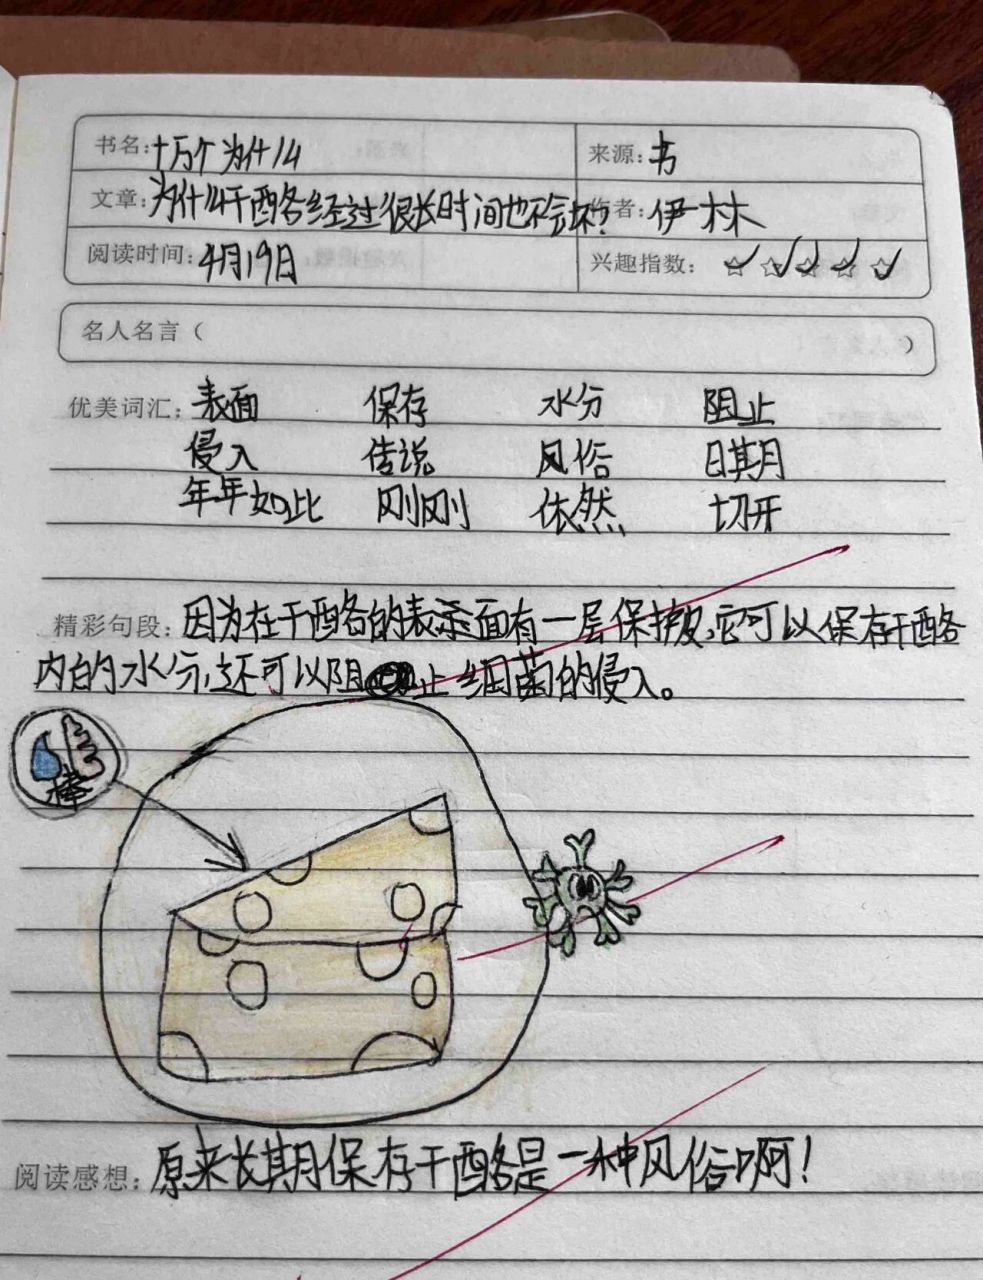 书名:十万个为什么 来源:书
文章:为什么干酪经过很长时间也不会坏? 作者:伊林
阅读时间:4月19日 兴趣指数:
名人名言( )
优美词汇:表面 保存 水分 阻止
侵入 传说 风俗 日期
年年如此 刚刚 依然 切开
精彩句段:因为在干酪的表面有一层保护皮,它可以保存干酪
内的水分,还可以阻止细菌的侵入。
棒
阅读感想:原来长期保存干酪是一种风俗啊!